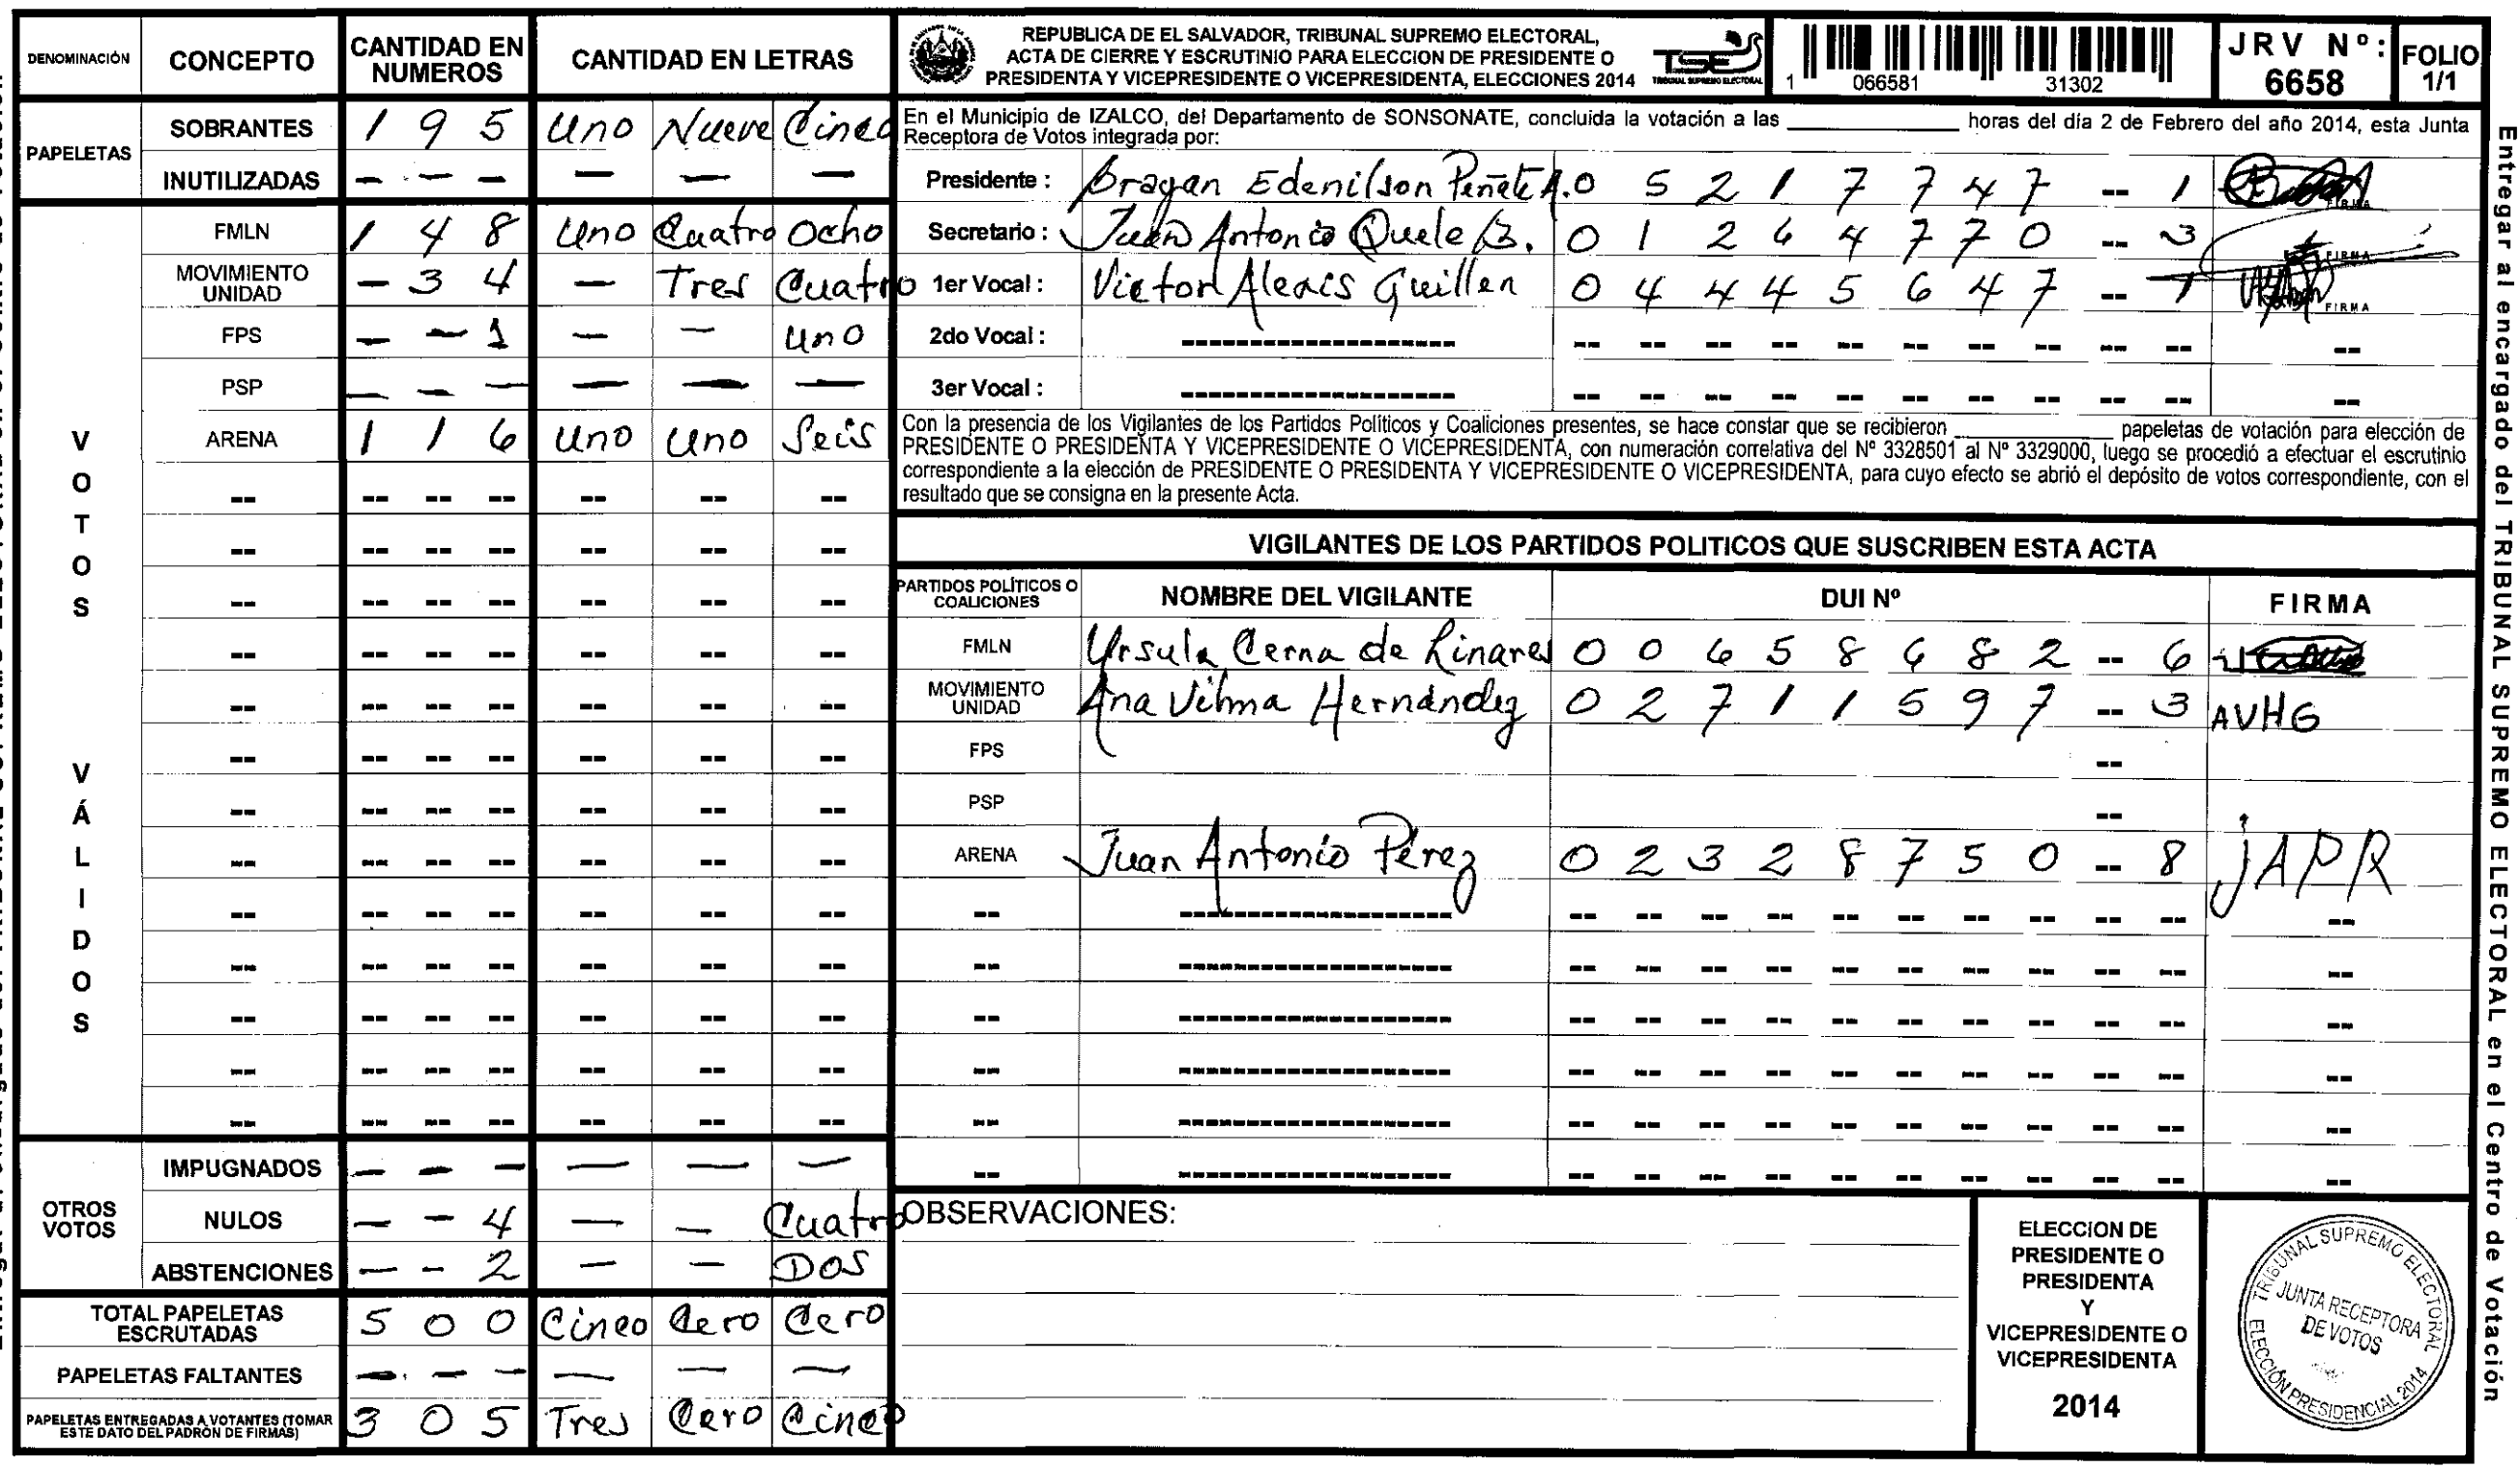 DENOMINACIÓN CONCEPTO CANTIDAD EN NUMEROS CANTIDAD EN LETRAS
PAPELETAS
SOBRANTES 1 9 5 Uno Nueve Cinco
INUTILIZADAS - - - - - -
VOTOS VÁLIDOS
FMLN 1 4 8 Uno Cuatro Ocho
MOVIMIENTO UNIDAD - 3 4 - Tres Cuatro
FPS - - 1 - - Uno
PSP - - - - - -
ARENA 1 1 6 Uno Uno Seis
-- -- -- -- -- -- --
-- -- -- -- -- -- --
-- -- -- -- -- -- --
-- -- -- -- -- -- --
-- -- -- -- -- -- --
-- -- -- -- -- -- --
-- -- -- -- -- -- --
-- -- -- -- -- -- --
-- -- -- -- -- -- --
-- -- -- -- -- -- --
-- -- -- -- -- -- --
-- -- -- -- -- -- --
-- -- -- -- -- -- --
OTROS VOTOS
IMPUGNADOS - - - - - -
NULOS - - 4 - - Cuatro
ABSTENCIONES - - 2 - - Dos
TOTAL PAPELETAS ESCRUTADAS 5 0 0 Cinco Cero Cero
PAPELETAS FALTANTES - - - - - -
PAPELETAS ENTREGADAS A VOTANTES (TOMAR ESTE DATO DEL PADRÓN DE FIRMAS) 3 0 5 Tres Cero Cinco
REPUBLICA DE EL SALVADOR, TRIBUNAL SUPREMO ELECTORAL,
ACTA DE CIERRE Y ESCRUTINIO PARA ELECCION DE PRESIDENTE O
PRESIDENTA Y VICEPRESIDENTE O VICEPRESIDENTA, ELECCIONES 2014
TSE
TRIBUNAL SUPREMO ELECTORAL
1 066581 31302
JRV Nº: 6658
FOLIO 1/1
En el Municipio de IZALCO, del Departamento de SONSONATE, concluida la votación a las ________ horas del día 2 de Febrero del año 2014, esta Junta
Receptora de Votos integrada por:
Presidente : Bragan Edenilson Peñate A. 0 5 2 1 7 7 4 7 -- 1 FIRMA
Secretario : Juan Antonio Quele B. 0 1 2 6 4 7 7 0 -- 3 FIRMA
1er Vocal : Victor Alexis Guillen 0 4 4 4 5 6 4 7 -- 1 FIRMA
2do Vocal : -------------------- -- -- -- -- -- -- -- -- -- -- --
3er Vocal : -------------------- -- -- -- -- -- -- -- -- -- -- --
Con la presencia de los Vigilantes de los Partidos Políticos y Coaliciones presentes, se hace constar que se recibieron ________ papeletas de votación para elección de
PRESIDENTE O PRESIDENTA Y VICEPRESIDENTE O VICEPRESIDENTA, con numeración correlativa del Nº 3328501 al Nº 3329000, luego se procedió a efectuar el escrutinio
correspondiente a la elección de PRESIDENTE O PRESIDENTA Y VICEPRESIDENTE O VICEPRESIDENTA, para cuyo efecto se abrió el depósito de votos correspondiente, con el
resultado que se consigna en la presente Acta.
VIGILANTES DE LOS PARTIDOS POLITICOS QUE SUSCRIBEN ESTA ACTA
PARTIDOS POLÍTICOS O COALICIONES NOMBRE DEL VIGILANTE DUI Nº FIRMA
FMLN Ursula Cerna de Linares 0 0 6 5 8 6 8 2 -- 6
MOVIMIENTO UNIDAD Ana Vilma Hernández 0 2 7 1 1 5 9 7 -- 3 AVHG
FPS --
PSP --
ARENA Juan Antonio Pérez 0 2 3 2 8 7 5 0 -- 8 JAPR
-- -------------------- -- -- -- -- -- -- -- -- -- -- --
-- -------------------- -- -- -- -- -- -- -- -- -- -- --
-- -------------------- -- -- -- -- -- -- -- -- -- -- --
-- -------------------- -- -- -- -- -- -- -- -- -- -- --
-- -------------------- -- -- -- -- -- -- -- -- -- -- --
-- -------------------- -- -- -- -- -- -- -- -- -- -- --
OBSERVACIONES:
ELECCION DE
PRESIDENTE O
PRESIDENTA
Y
VICEPRESIDENTE O
VICEPRESIDENTA
2014
TRIBUNAL SUPREMO ELECTORAL
JUNTA RECEPTORA
DE VOTOS
ELECCIÓN PRESIDENCIAL 2014
Entregar al encargado del TRIBUNAL SUPREMO ELECTORAL en el Centro de Votación